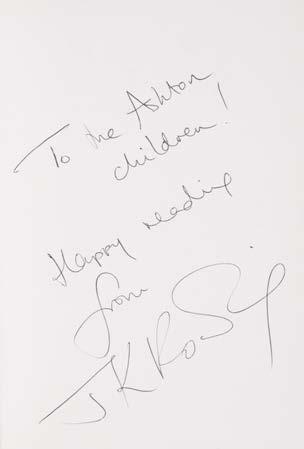 To the Ashton
children!
Happy reading
from
JK Rowling